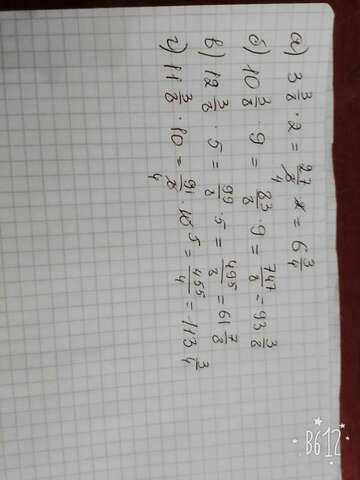 а) 3 3/8 · 2 = 27/8 · 2 = 6 3/4
б) 10 3/8 · 9 = 83/8 · 9 = 747/8 = 93 3/8
в) 12 3/8 · 5 = 99/8 · 5 = 495/8 = 61 7/8
г) 11 3/8 · 10 = 91/8 · 10 = 455/4 = 113 3/4
B612